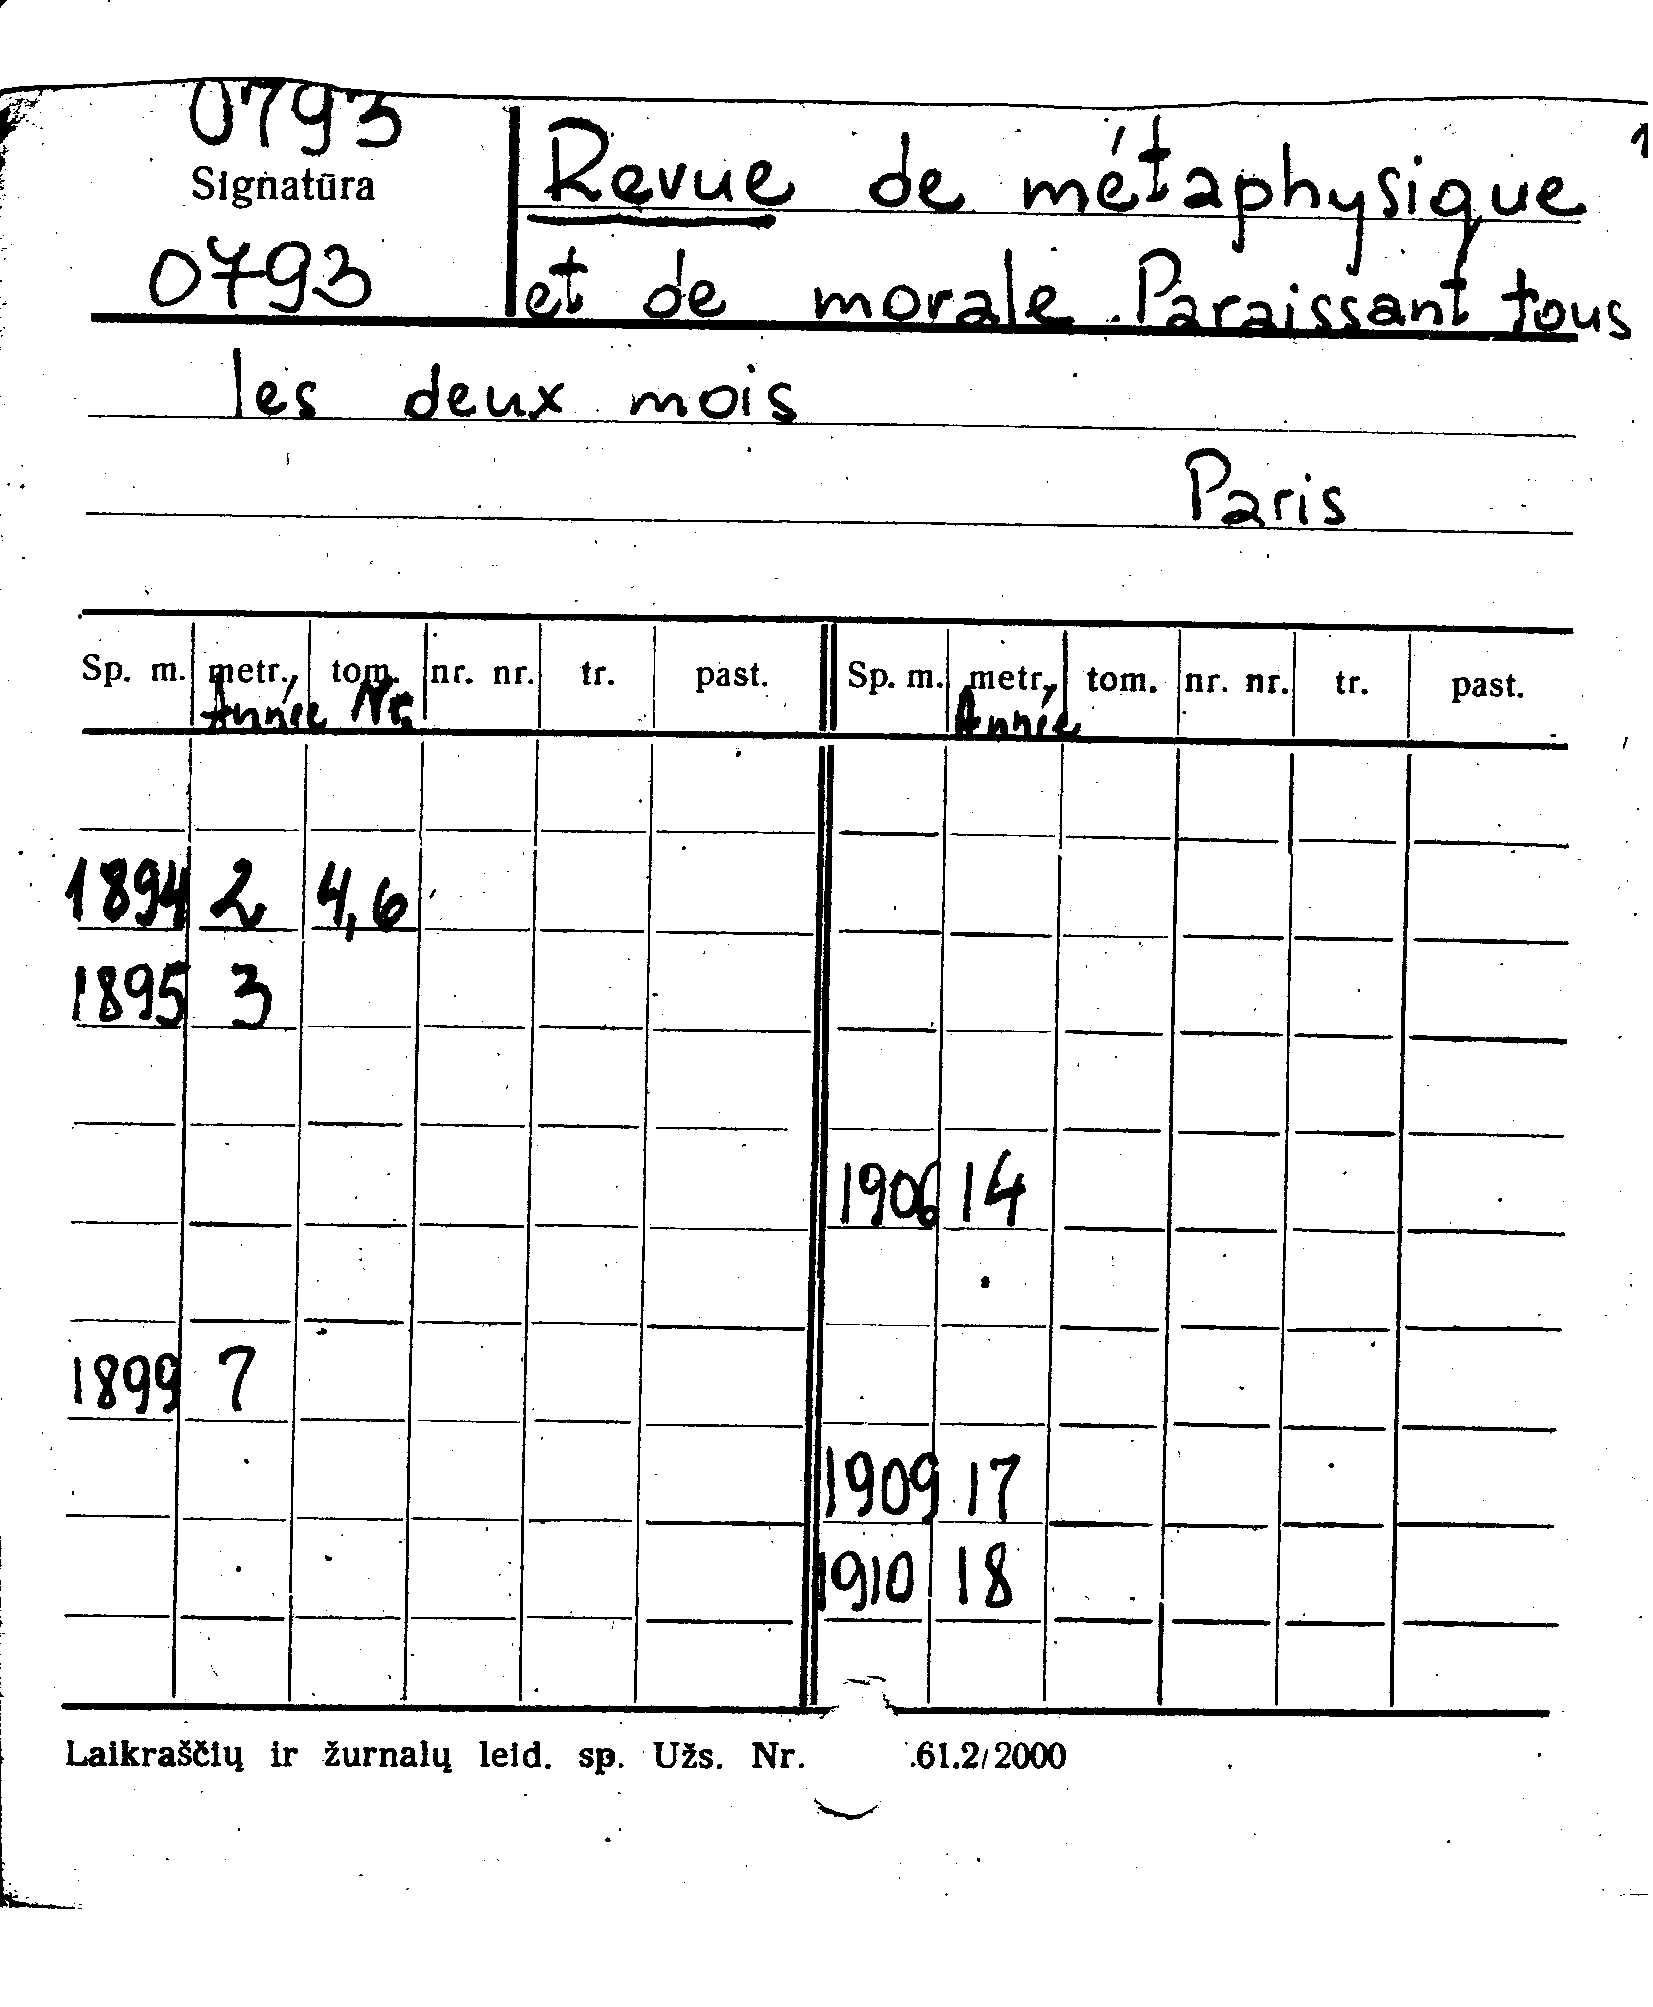 0793
Signatūra
0793
Revue de métaphysique 1
et de morale. Paraissant tous
les deux mois
Paris
Sp. m. metr. tom. nr. nr. tr. past. Sp. m. metr. tom. nr. nr. tr. past.
Année Nr. Année
1894 2 4,6
1895 3
1906 14
1899 7
1909 17
1910 18
Laikraščių ir žurnalų leid. sp. Užs. Nr. .61.2/2000